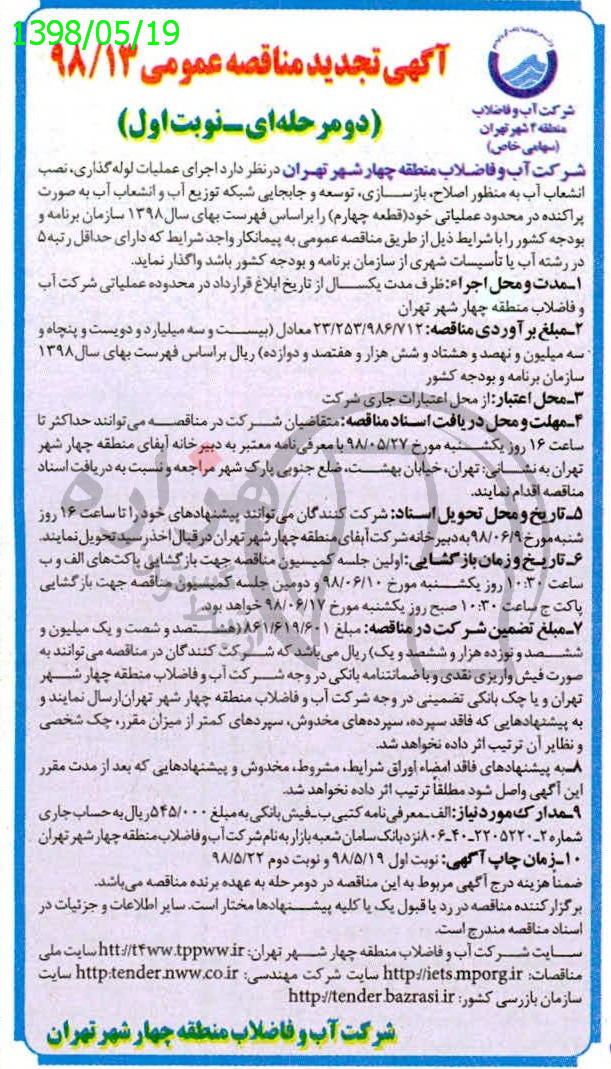 1398/05/19
آگهی تجدید مناقصه عمومی ۹۸/۱۳
(دومرحله‌ای ـ نوبت اول)
شرکت آب و فاضلاب
منطقه ۴ شهر تهران
(سهامی خاص)
شرکت آب و فاضلاب منطقه چهار شهر تهران در نظر دارد اجرای عملیات لوله گذاری، نصب
انشعاب آب به منظور اصلاح، بازسازی، توسعه و جابجایی شبکه توزیع آب و انشعاب آب به صورت
پراکنده در محدود عملیاتی خود (قطعه چهارم) را براساس فهرست بهای سال ۱۳۹۸ سازمان برنامه و
بودجه کشور را با شرایط ذیل از طریق مناقصه عمومی به پیمانکار واجد شرایط که دارای حداقل رتبه ۵
در رشته آب یا تأسیسات شهری از سازمان برنامه و بودجه کشور باشد واگذار نماید.
۱ـ مدت و محل اجراء: ظرف مدت یکسال از تاریخ ابلاغ قرارداد در محدوده عملیاتی شرکت آب
و فاضلاب منطقه چهار شهر تهران
۲ـ مبلغ برآوردی مناقصه: ۲۳/۲۵۳/۹۸۶/۷۱۲ معادل (بیست و سه میلیارد و دویست و پنجاه و
سه میلیون و نهصد و هشتاد و شش هزار و هفتصد و دوازده) ریال براساس فهرست بهای سال ۱۳۹۸
سازمان برنامه و بودجه کشور
۳ـ محل اعتبار: از محل اعتبارات جاری شرکت
۴ـ مهلت و محل دریافت اسناد مناقصه: متقاضیان شرکت در مناقصه می‌توانند حداکثر تا
ساعت ۱۶ روز یکشنبه مورخ ۹۸/۰۵/۲۷ با معرفی نامه معتبر به دبیرخانه آبفای منطقه چهار شهر
تهران به نشانی: تهران، خیابان بهشت، ضلع جنوبی پارک شهر مراجعه و نسبت به دریافت اسناد
مناقصه اقدام نمایند.
۵ـ تاریخ و محل تحویل اسناد: شرکت کنندگان می‌توانند پیشنهادهای خود را تا ساعت ۱۶ روز
شنبه مورخ ۹۸/۰۶/۹ به دبیرخانه شرکت آبفای منطقه چهار شهر تهران در قبال اخذ رسید تحویل نمایند.
۶ـ تاریخ و زمان بازگشایی: اولین جلسه کمیسیون مناقصه جهت بازگشایی پاکت‌های الف و ب
ساعت ۱۰:۳۰ روز یکشنبه مورخ ۹۸/۰۶/۱۰ و دومین جلسه کمیسیون مناقصه جهت بازگشایی
پاکت ج ساعت ۱۰:۳۰ صبح روز یکشنبه مورخ ۹۸/۰۶/۱۷ خواهد بود.
۷ـ مبلغ تضمین شرکت در مناقصه: مبلغ ۸۶۱/۶۱۹/۶۰۱ (هشتصد و شصت و یک میلیون و
ششصد و نوزده هزار و ششصد و یک) ریال می‌باشد که شرکت کنندگان در مناقصه می‌توانند به
صورت فیش واریزی نقدی و یا ضمانتنامه بانکی در وجه شرکت آب و فاضلاب منطقه چهار شهر
تهران و یا چک بانکی تضمینی در وجه شرکت آب و فاضلاب منطقه چهار شهر تهران ارسال نمایند و
به پیشنهادهایی که فاقد سپرده، سپرده‌های مخدوش، سپرده‌ای کمتر از میزان مقرر، چک شخصی
و نظایر آن ترتیب اثر داده نخواهد شد.
۸ـ به پیشنهادهای فاقد امضاء اوراق شرایط، مشروط، مخدوش و پیشنهادهایی که بعد از مدت مقرر
این آگهی واصل شود مطلقاً ترتیب اثر داده نخواهد شد.
۹ـ مدارک مورد نیاز: الف ـ معرفی نامه کتبی ب ـ فیش بانکی به مبلغ ۵۴۵/۰۰۰ ریال به حساب جاری
شماره ۲ـ۲۲۰۵۲۲۰ـ۴۰ـ۸۰۶ نزد بانک سامان شعبه بازار به نام شرکت آب و فاضلاب منطقه چهار شهر تهران
۱۰ـ زمان چاپ آگهی: نوبت اول ۹۸/۵/۱۹ و نوبت دوم ۹۸/۵/۲۲
ضمناً هزینه درج آگهی مربوط به این مناقصه در دومرحله به عهده برنده مناقصه می‌باشد.
برگزار کننده مناقصه در رد یا قبول یک یا کلیه پیشنهادها مختار است. سایر اطلاعات و جزئیات در
اسناد مناقصه مندرج است.
سایت شرکت آب و فاضلاب منطقه چهار شهر تهران: htt://t4ww.tppww.ir سایت ملی
مناقصات: http://iets.mporg.ir سایت شرکت مهندسی: http:tender.nww.co.ir سایت
سازمان بازرسی کشور: http://tender.bazrasi.ir
شرکت آب و فاضلاب منطقه چهار شهر تهران